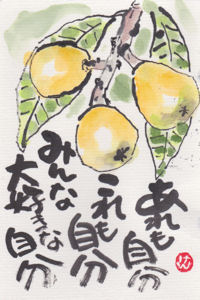 あれも自分
これも自分
みんな
大好きな
自分